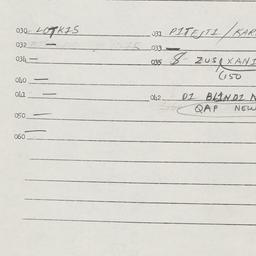 030 LOTKIS
031 PITEJTI / KAR
032 —
033 —
034 —
035 8 - ZUS XANI
(150
040 —
041 —
042 DI BLINDI N
QAP NEW
050 —
060